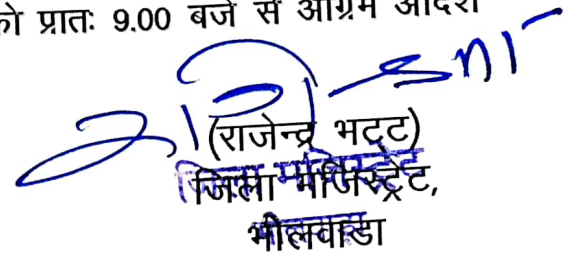 को प्रातः 9.00 बजे से अग्रिम आदेश
(राजेन्द्र भट्ट)
जिला मजिस्ट्रेट,
भीलवाडा